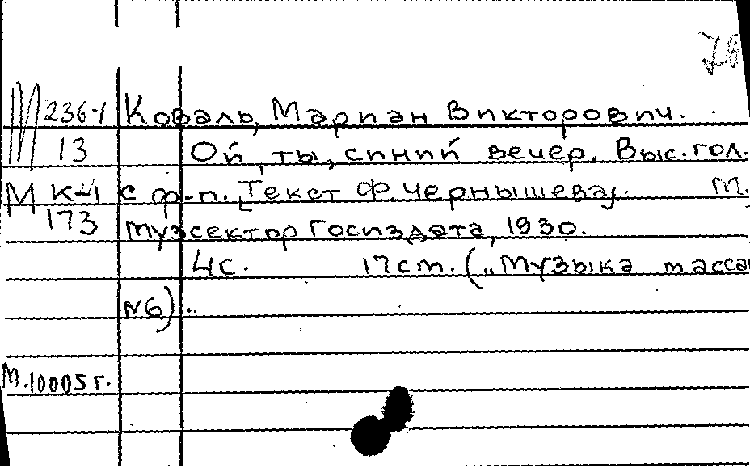 78
М 236-1 Коваль, Мариан Викторович.
13 Ой, ты, синий вечер. Выс. гол.
М К-4 с ф-п. [Текст Ф. Чернышева]. М.,
173 музсектор Госиздата, 1930.
4с. 17см. („Музыка масса
№6)..
М.10005 г.